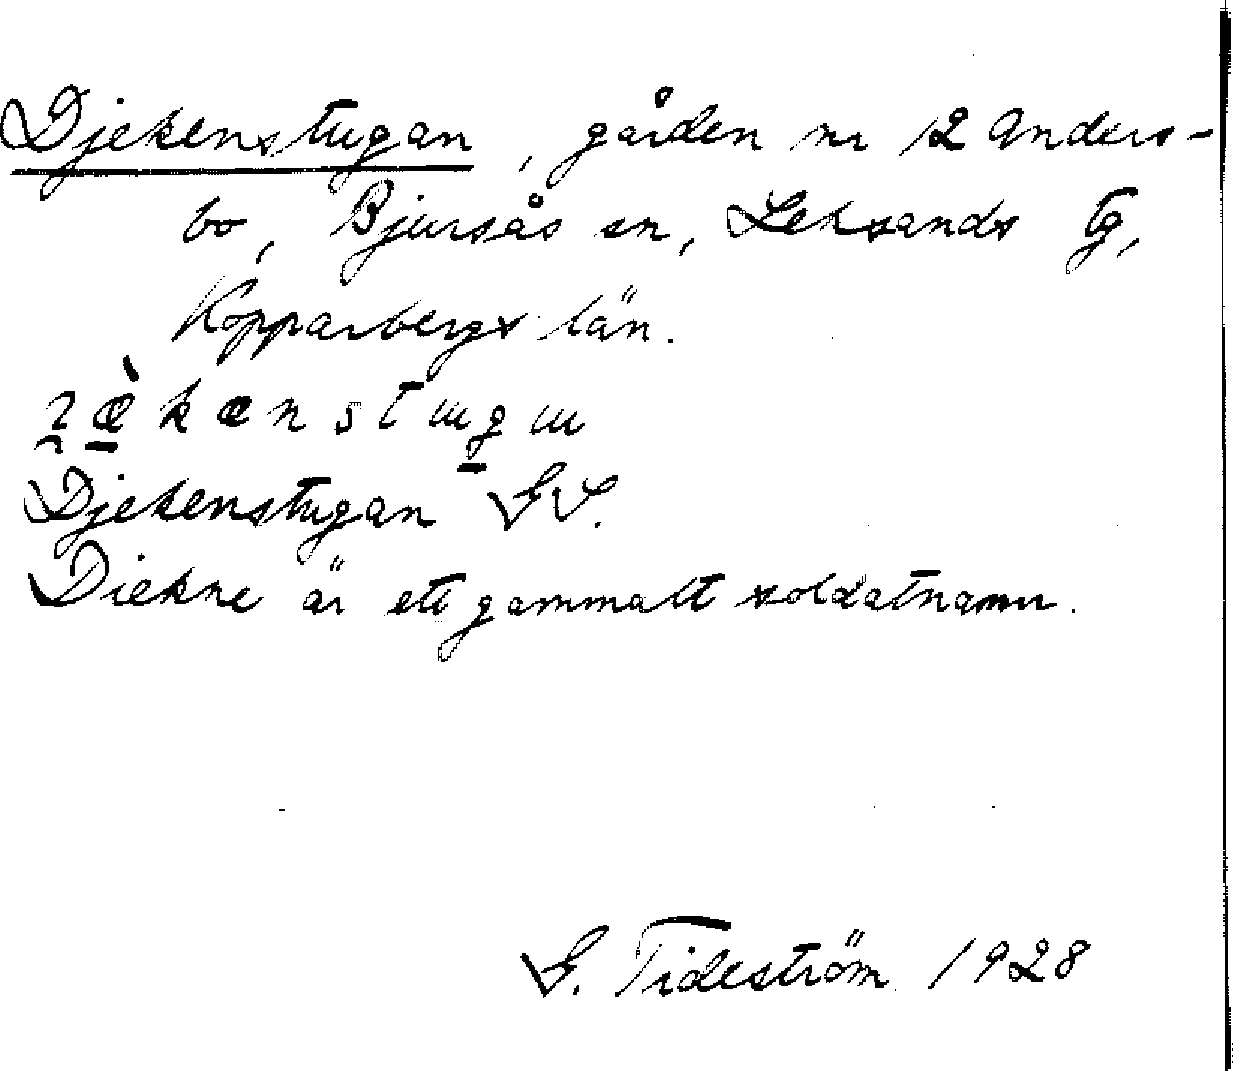 Djekenstugan, gården nr 12 Anders-
bo, Bjursås sn, Leksands tg,
Kopparbergs län.
Djekenstugan GS.
Diekne är ett gammalt soldatnamn.
G. Tideström 1928